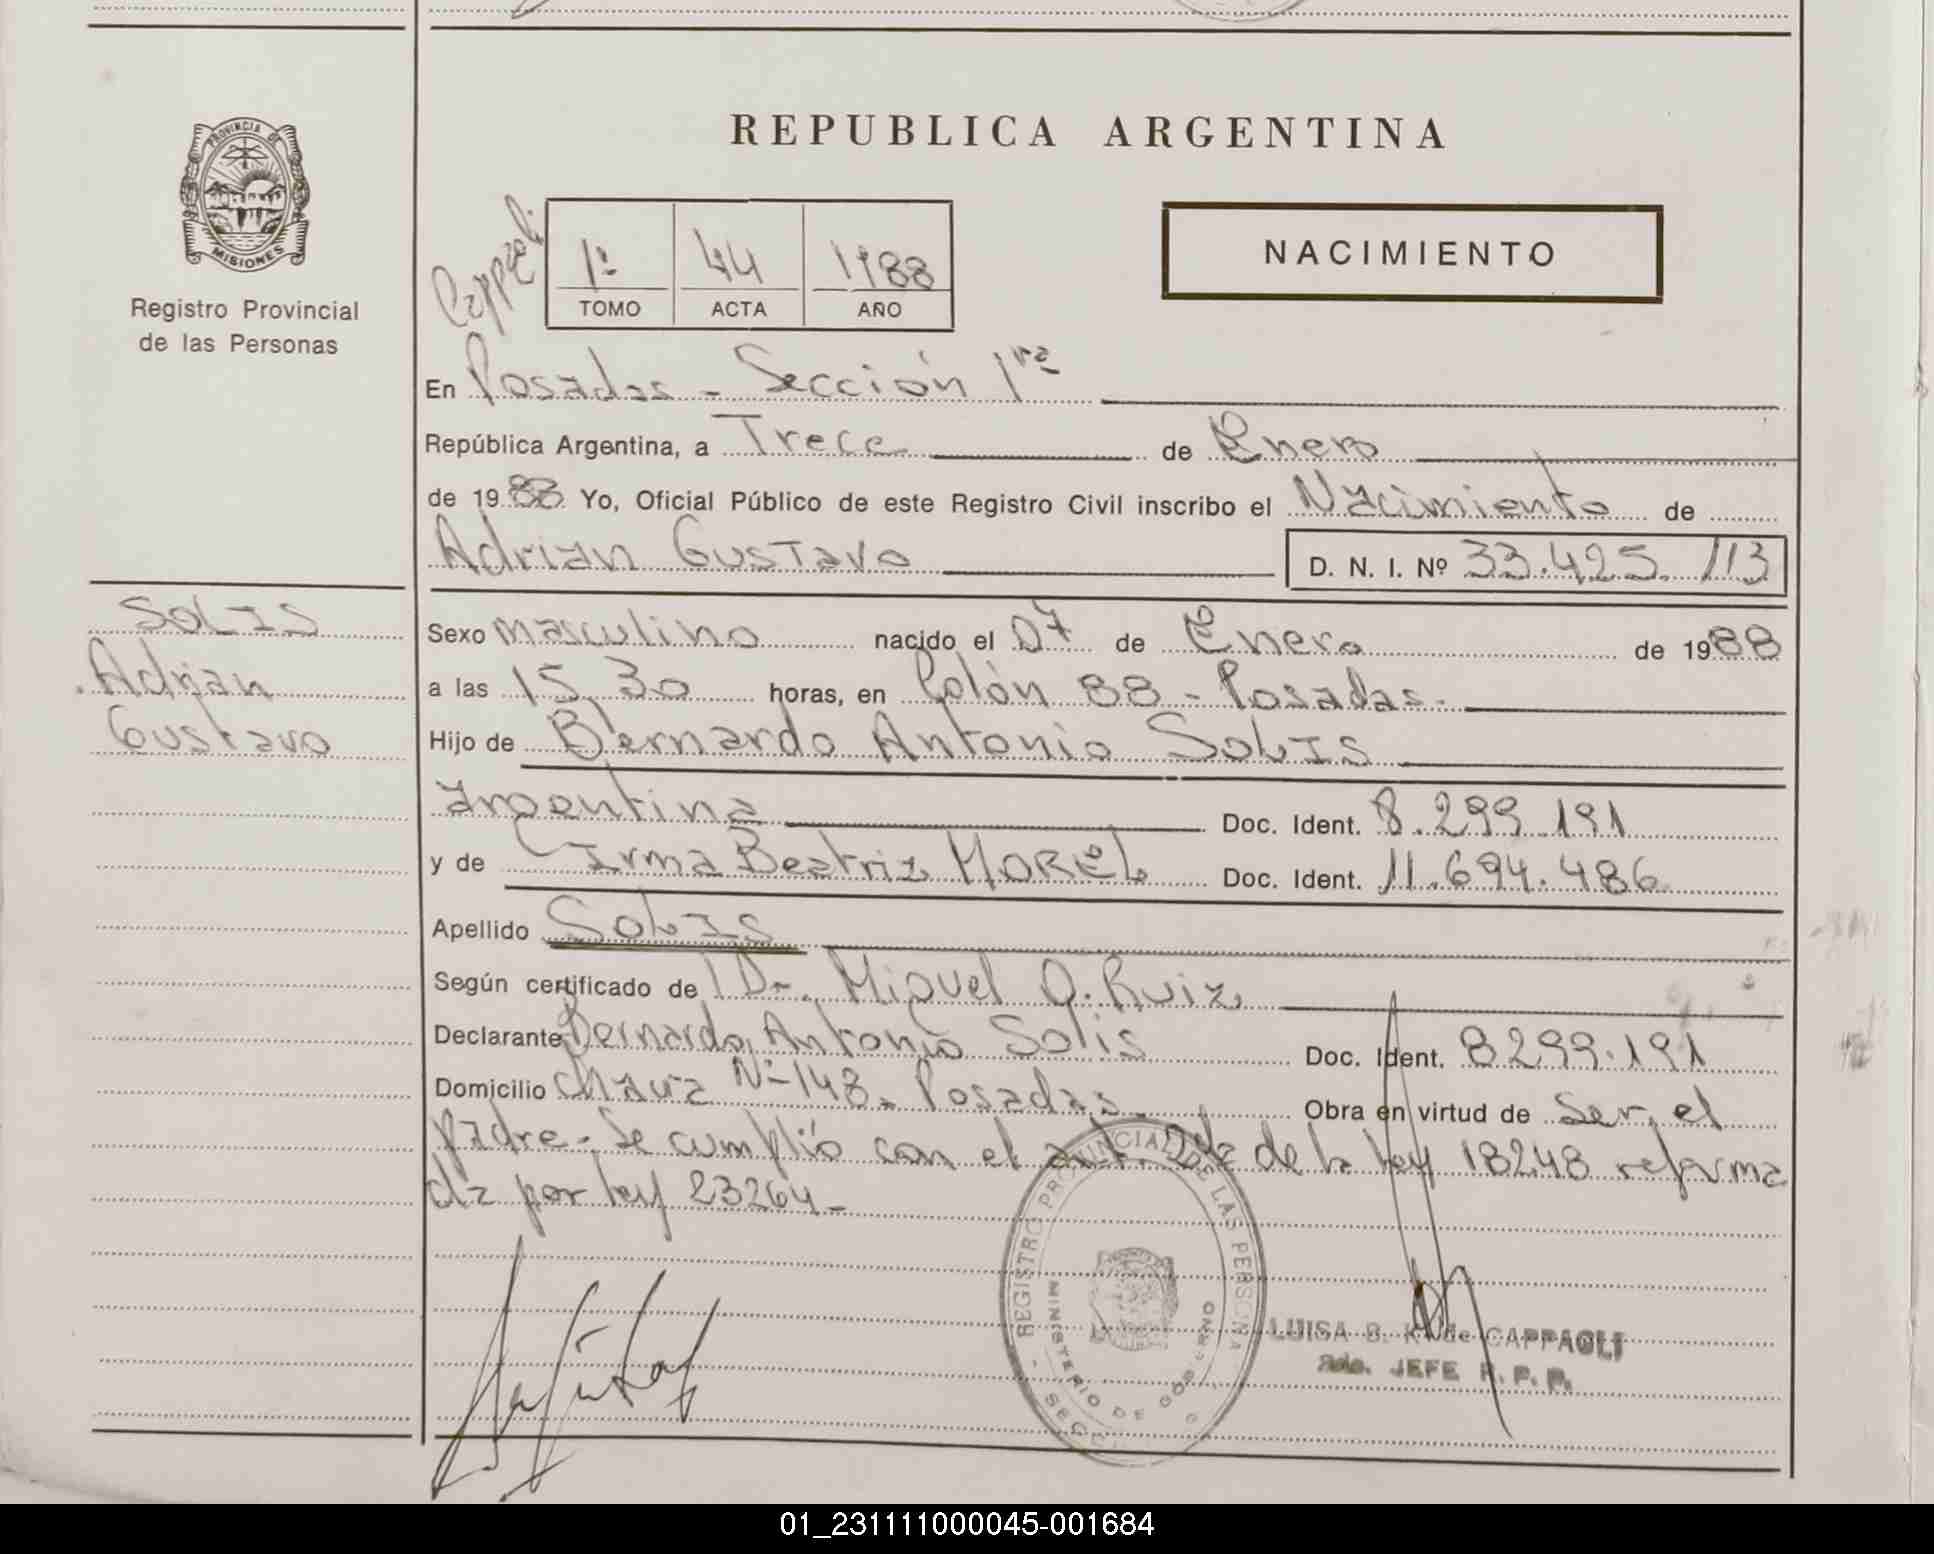 PROVINCIA DE
MISIONES
Registro Provincial
de las Personas
SOLIS
Adrian
Gustavo
REPUBLICA ARGENTINA
1º 44 1988
TOMO ACTA AÑO
NACIMIENTO
En Posadas - Sección 1ra
República Argentina, a Trece de Enero
de 1988 Yo, Oficial Público de este Registro Civil inscribo el Nacimiento de
Adrian Gustavo D. N. I. Nº 33.425.113
Sexo masculino nacido el 07 de Enero de 1988
a las 15,30 horas, en Colón 88 - Posadas.
Hijo de Bernardo Antonio SOLIS
Argentina Doc. Ident. 8.299.191
y de Irma Beatriz MOREL Doc. Ident. 11.694.486
Apellido SOLIS
Según certificado de Dr. Miguel O. Ruiz
Declarante Bernardo Antonio Solis Doc. Ident. 8299.191
Domicilio Nº 148. Posadas. Obra en virtud de Ser el
padre. Se cumplió con el art. de la ley 18248 reforma
da por ley 23264-
REGISTRO PROVINCIAL DE LAS PERSONA
MINISTERIO DE GOBIERNO
LUISA B. K. de CAPPAGLI
JEFE R. P. P.
01_231111000045-001684